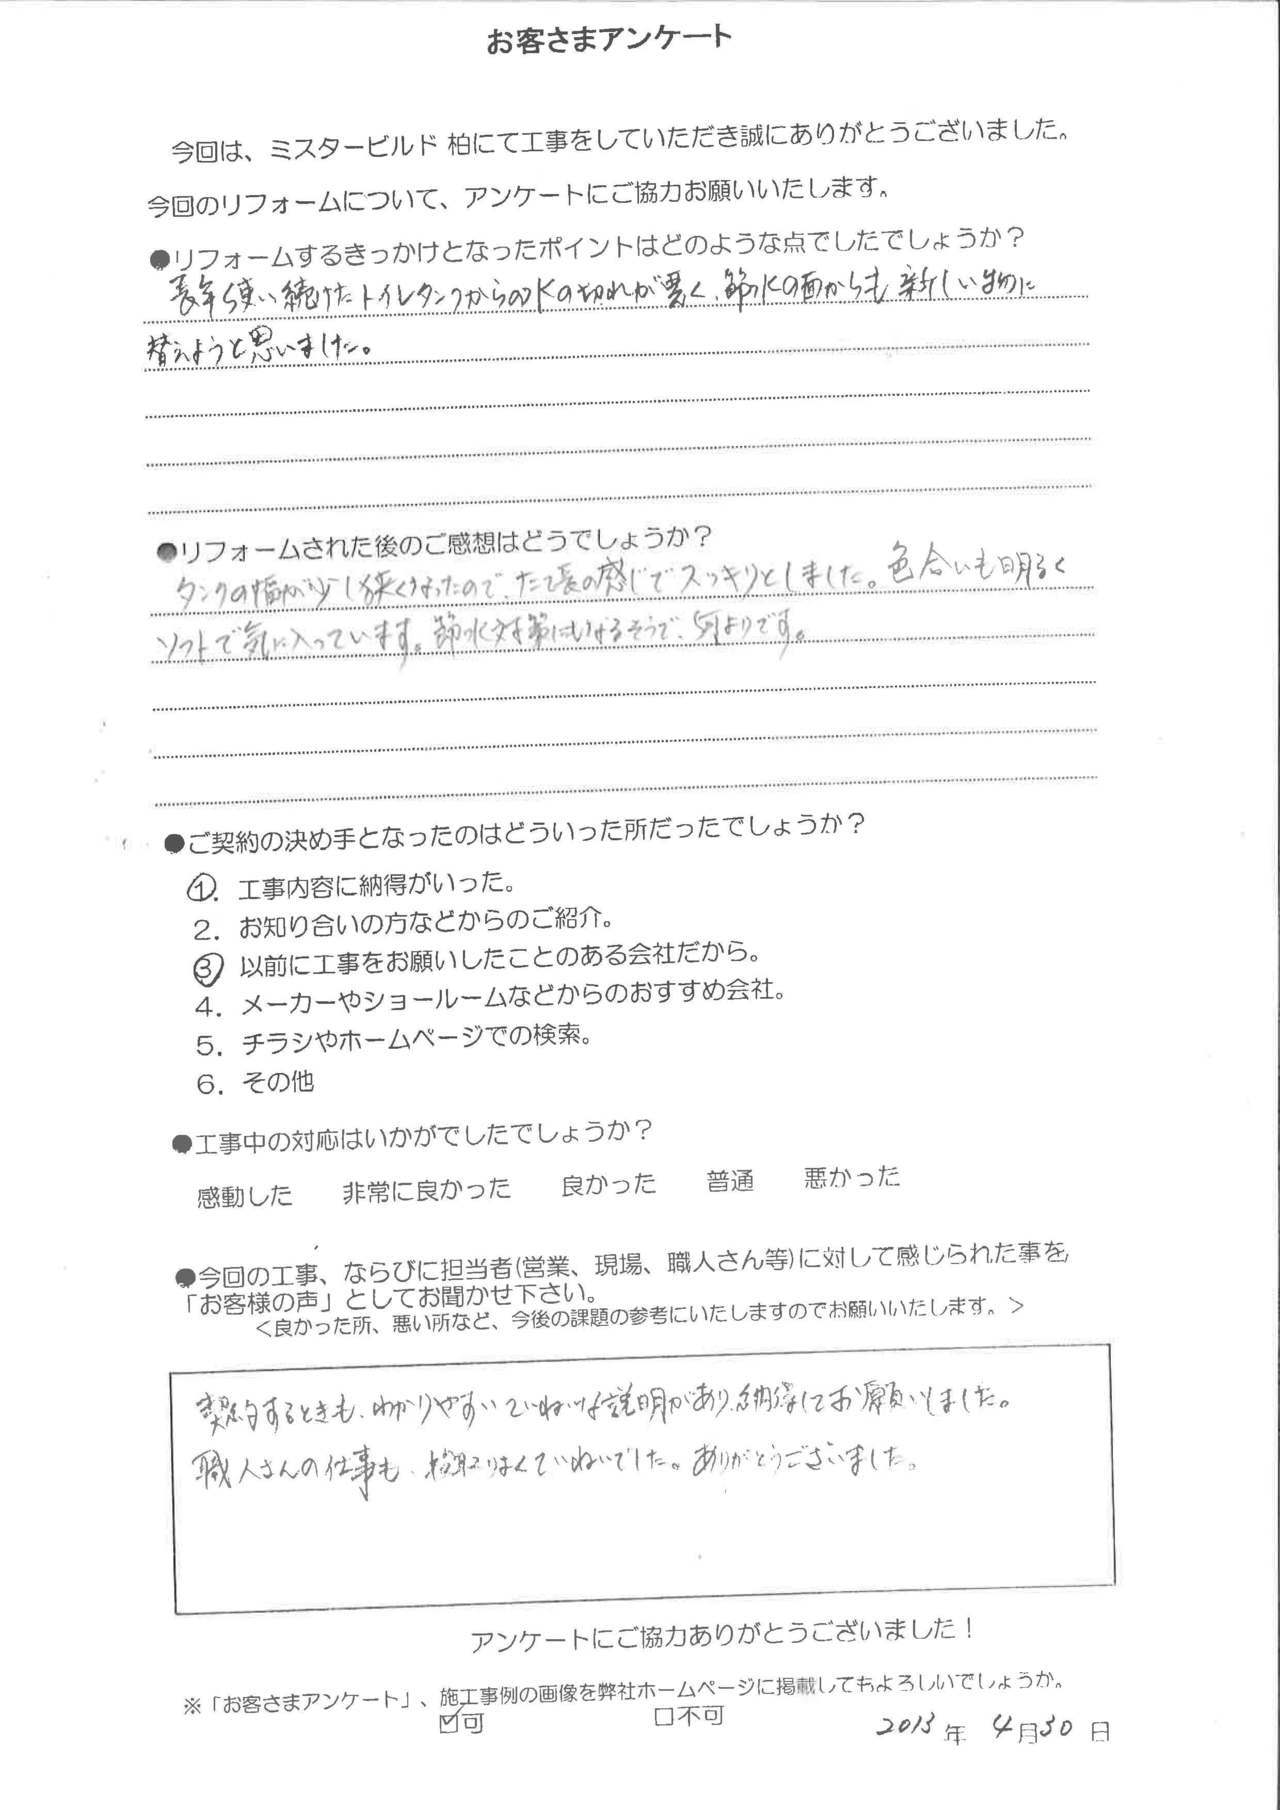 お客さまアンケート
今回は、ミスタービルド 柏にて工事をしていただき誠にありがとうございました。
今回のリフォームについて、アンケートにご協力お願いいたします。
●リフォームするきっかけとなったポイントはどのような点でしたでしょうか？
長年使い続けたトイレタンクからの水の切れが悪く、節水の面からも新しい物に
替えようと思いました。
●リフォームされた後のご感想はどうでしょうか？
タンクの幅が少し狭くなったので、たて長の感じでスッキリとしました。色合いも明るく
ソフトで気に入っています。節水対策にもなるそうで、何よりです。
●ご契約の決め手となったのはどういった所だったでしょうか？
①. 工事内容に納得がいった。
２. お知り合いの方などからのご紹介。
③ 以前に工事をお願いしたことのある会社だから。
４. メーカーやショールームなどからのおすすめ会社。
５. チラシやホームページでの検索。
６. その他
●工事中の対応はいかがでしたでしょうか？
感動した　非常に良かった　良かった　普通　悪かった
●今回の工事、ならびに担当者(営業、現場、職人さん等)に対して感じられた事を
「お客様の声」としてお聞かせ下さい。
＜良かった所、悪い所など、今後の課題の参考にいたしますのでお願いいたします。＞
契約するときも、わかりやすいていねいな説明があり、納得してお願いしました。
職人さんの仕事も、段取りよくていねいでした。ありがとうございました。
アンケートにご協力ありがとうございました！
※「お客さまアンケート」、施工事例の画像を弊社ホームページに掲載してもよろしいでしょうか。
☑可　□不可
2013 年 4 月 30 日